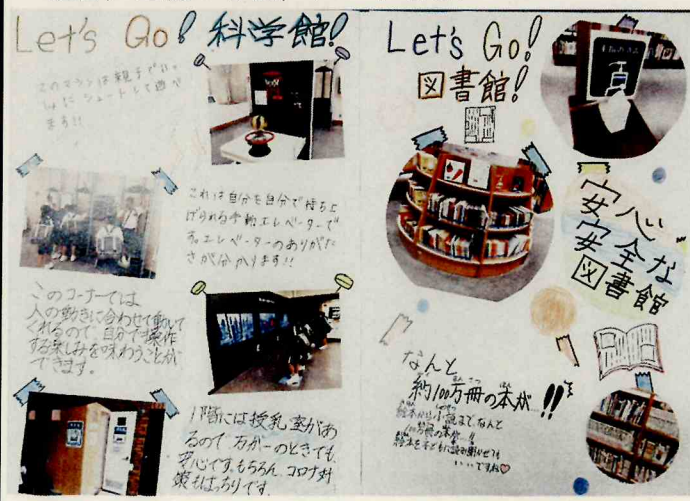 Let's Go! 科学館!
このマシンは親子でいっ
しょにシュートして遊べ
ます!!
これは自分を自分で持ち上
げられる手動エレベーターで
す。エレベーターのありがた
さが分かります!!
このコーナーでは
人の動きに合わせて動いて
くれるので、自分で操作
する楽しみを味わうことが
できます。
1階には授乳室があ
るので、万が一のときでも
安心です。もちろん、コロナ対
策もばっちりです。
Let's Go!
図書館!
安心
安全な
図書館
なんと
約100万冊の本が!!
絵本から小説まで、なんと
100万冊の本が!!
絵本を子どもに読み聞かせても
いいですね♡